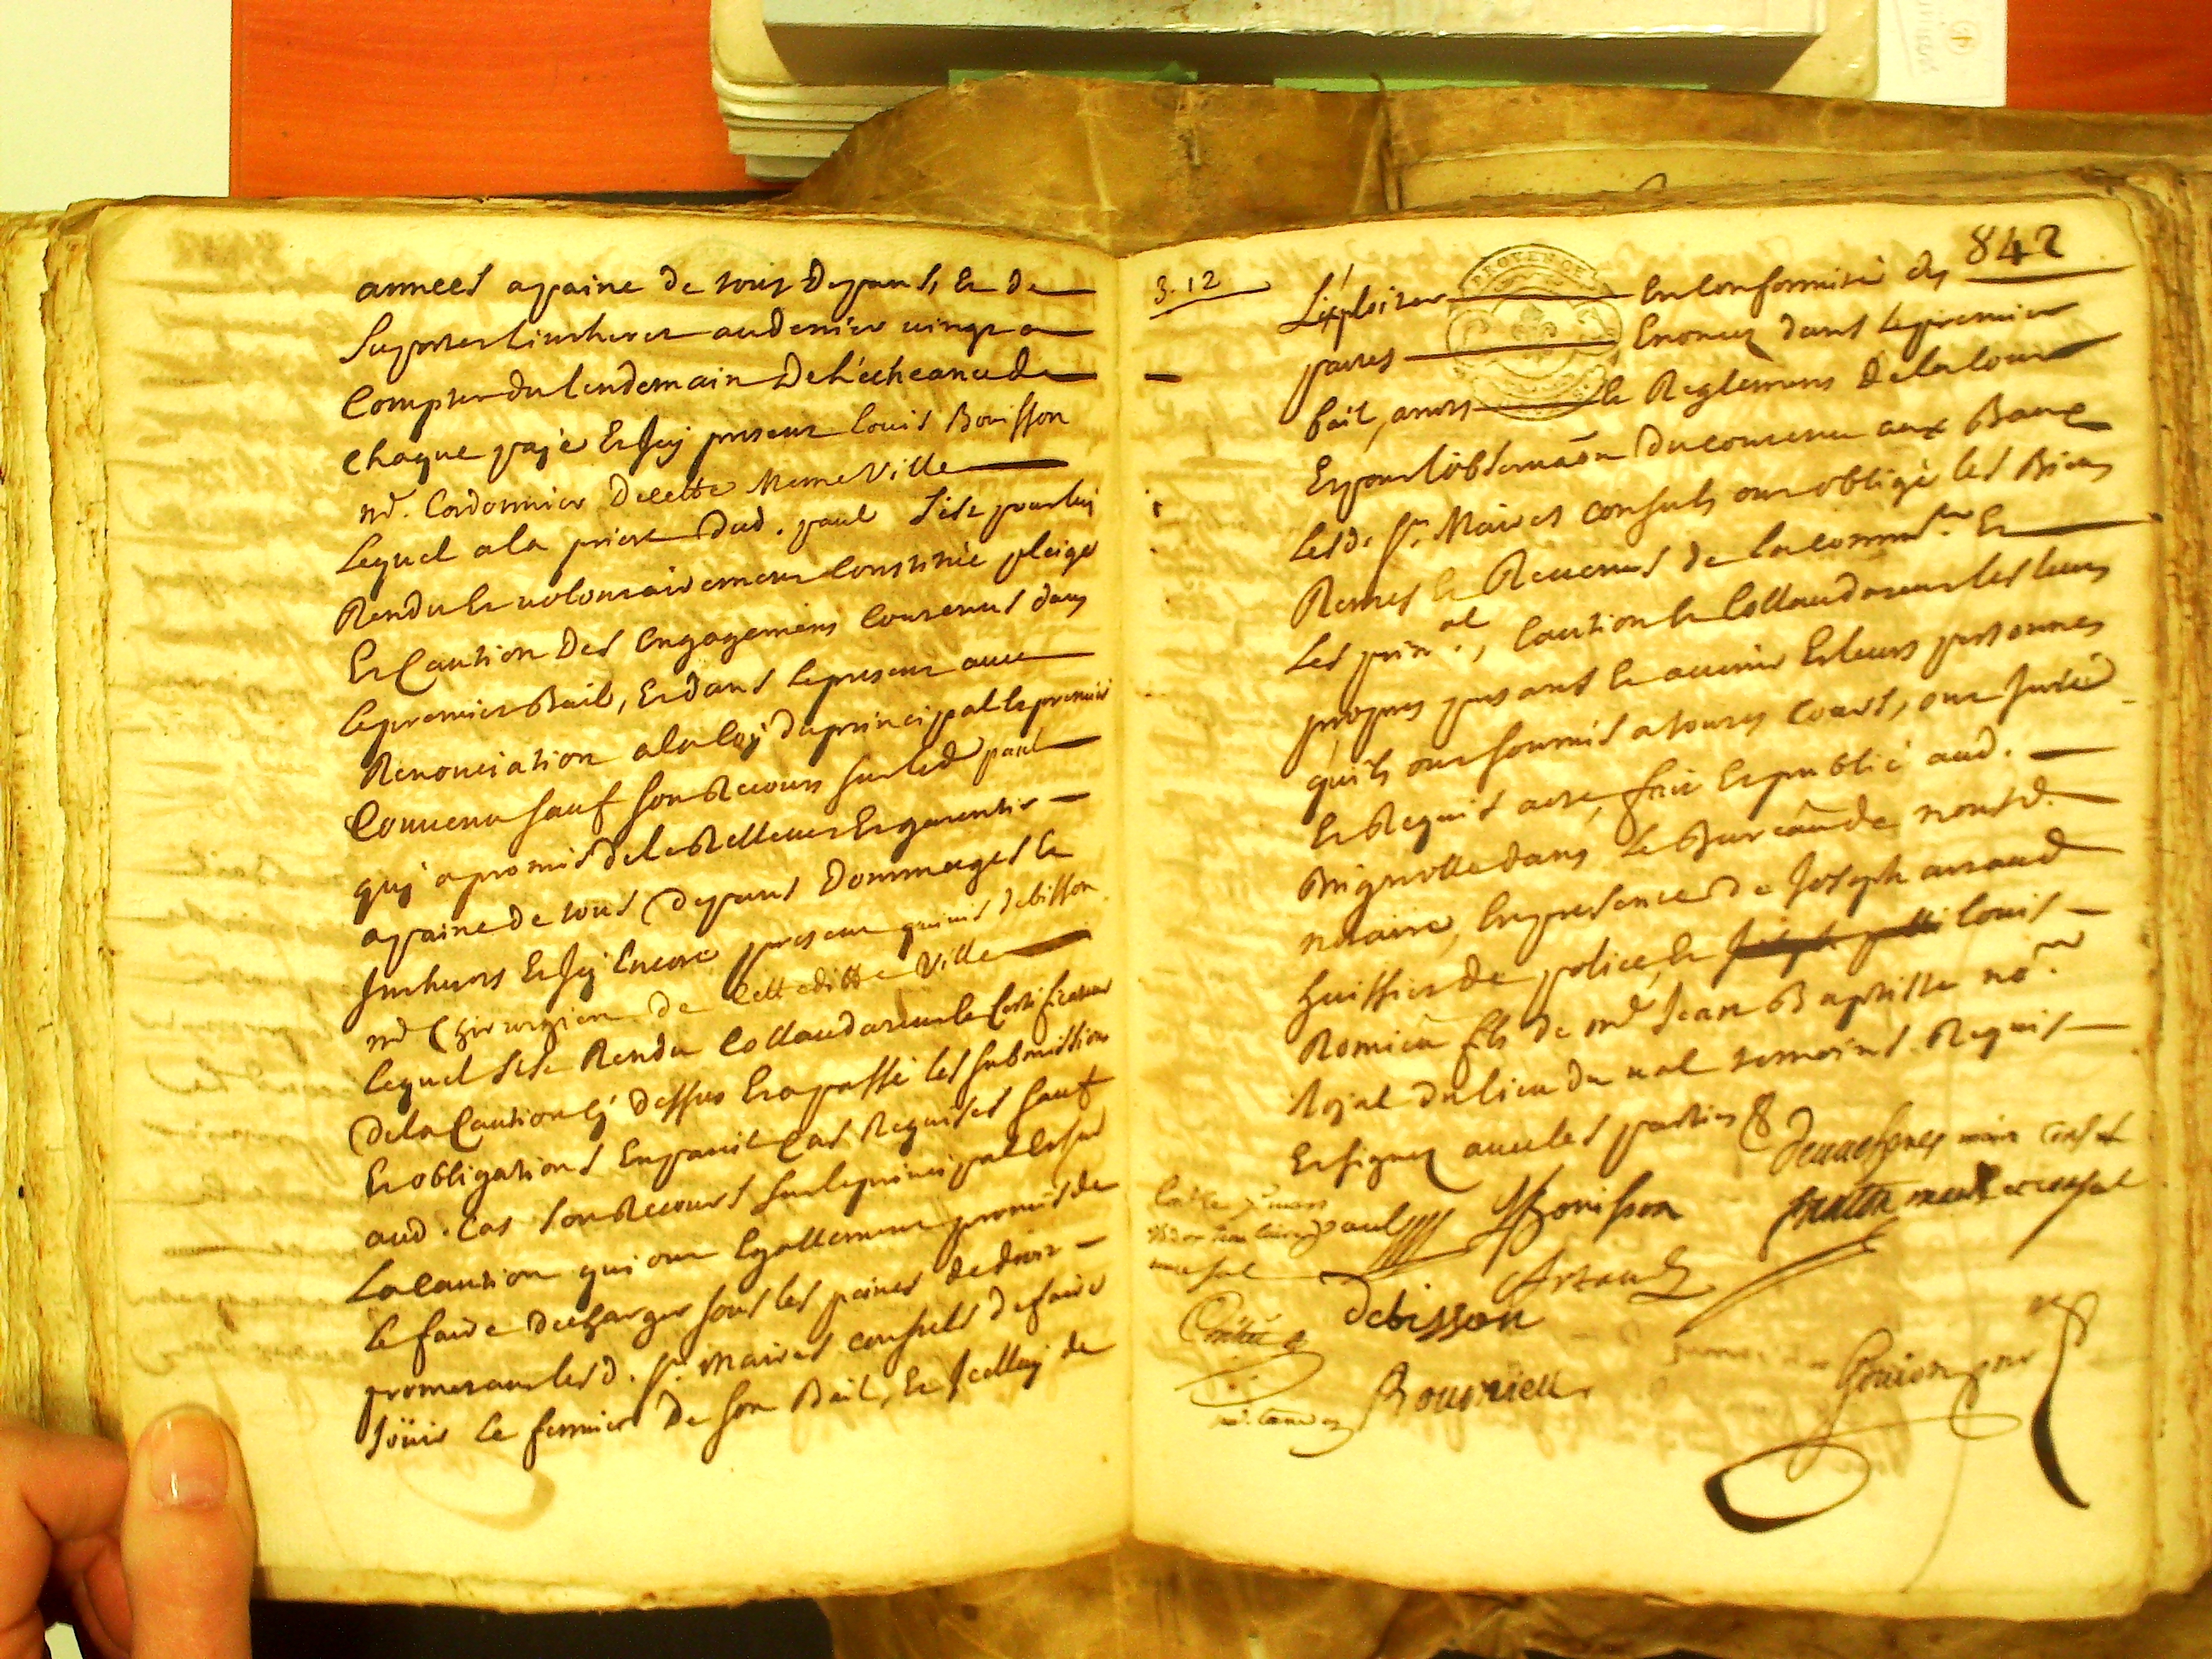 annees a paine de tous depans, Et de
Suporter linteret au denier vingt a
Compter du lendemain De l'echeance de
chaque paÿe Et Icy present Louis Bouisson
m.d Cordonnier De cette Meme Ville
Lequel a la priere Dud. paul S'est pour luy
Rendu Et volontairement Constitüé pleige
Et Caution Des Engagemens Contenus dans
le premier Bail, Et dans le present avec
Renonciation a la loÿ du principal le premier
Convenu sauf son Recours sur led paul
quÿ a promis de le Rellever Et garentir
a paine de tous depans Dommages Et
Interets Et Icy Encore present debisson
m.d Chirurgien de Cetteditte Ville
lequel s'est Rendu Collaudateur Et Certificateur
De la Caution cÿ dessus Et a passé les submissions
Et obligations En pareil Cas Requises sauf
aud. Cas son Recours sur le principal Et sur
La Caution qui ont Egallement promis de
le faire decharger sous les peines de droit
promettant les d. S.rs Maires consuls de faire
Joüir le fermier De son Bail, Et Icelluy de
842
3.12
L'exploiter En Conformité des
pactes Enoncez dans le premier
bail, a mort le Reglement de la Cour
Et pour l'observãon Du contenu aux Baux
Les d. S.rs Maires consuls ont obligé les Biens
Rentes Et Revenus de la comm.té Et
Les prin.al, Caution Et Collaudateur les leurs
propres presants Et avenir Et leurs personnes
qu'ils ont soumis a toutes Cours, ont Juré
Et Requis acte, fait Et publié aud.
Brignolle dans le Bureau de nousd.
notaire, En presence De Joseph arnaud
huissier de police, Et Louis
Romieu fils de m.e Jean Baptiste no.re
Royal du lieu du val temoins Requis
Et signez avec les parties
maire consul
Paul Bouisson consul
Debisson Arnaud